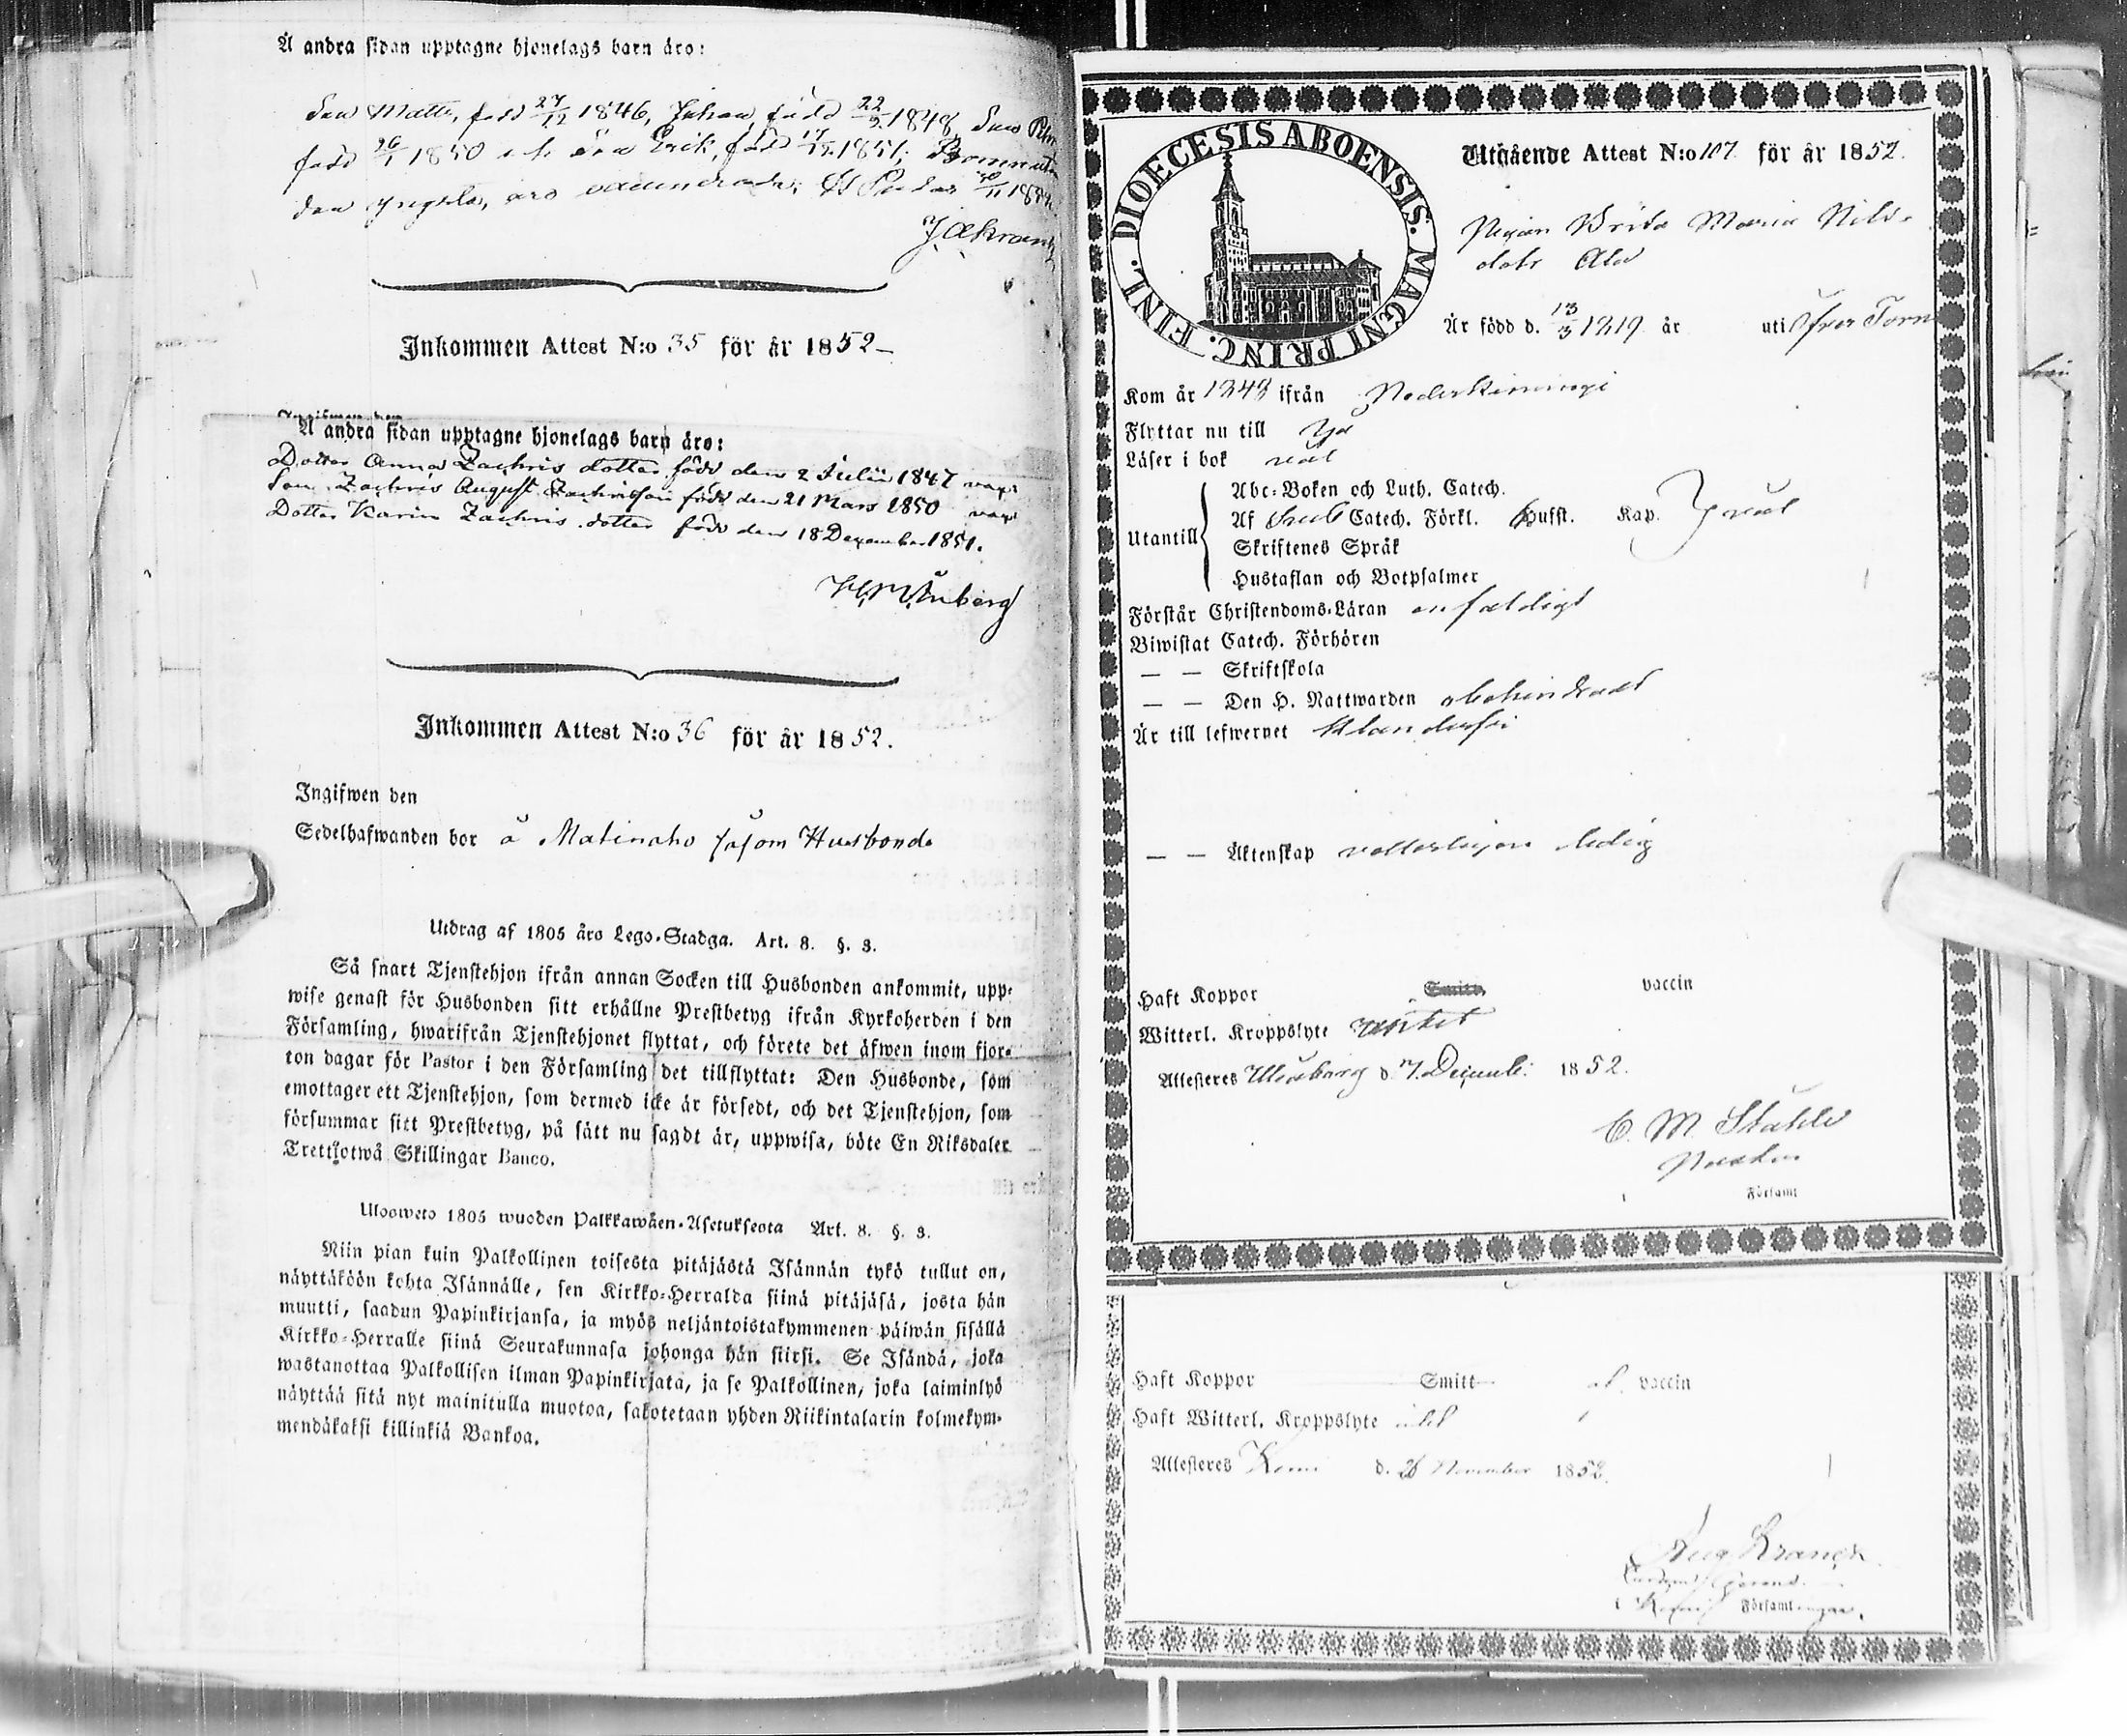 Å andra sidan upptagne hjonelags barn äro:
Son Matts, född 27/12 1846, Johan, född 22/9 1848, Son
född 26/1 1850 och Son Erik, född 17/12 1851;
den yngsta, äro vaccinerade; 1852
Inkommen Attest N:o 35 för år 1852
Ingifwen den
Å andra sidan upptagne hjonelags barn äro:
Dotter Anna Zachris dotter född den 2 Julii 1847 vacc
Son Zachris August Zachrisson född den 21 Mars 1850 vacc
Dotter Karin Zachris dotter född den 18 December 1851.
Inkommen Attest N:o 36 för år 1852.
Ingifwen den
Sedelhafwanden bor å Matinaho såsom Husbonde
Utdrag af 1805 års Lego-Stadga. Art. 8. §. 3.
Så snart Tjenstehjon ifrån annan Socken till Husbonden ankommit, upp-
wise genast för Husbonden sitt erhållne Prestbetyg ifrån Kyrkoherden i den
Församling, hwarifrån Tjenstehjonet flyttat, och förete det äfwen inom fjor-
ton dagar för Pastor i den Församling det tillflyttat: Den Husbonde, som
emottager ett Tjenstehjon, som dermed icke är försedt, och det Tjenstehjon, som
försummar sitt Prestbetyg, på sätt nu sagdt är, uppwisa, böte En Riksdaler
Trettjotwå Skillingar Banco.
Ulosweto 1805 wuoden Palkkawäen-Asetuksesta Art. 8. §. 3.
Niin pian kuin Palkollinen toisesta pitäjästä Isännän tykö tullut on,
näyttäköön kohta Isännälle, sen Kirkko-Herralda siinä pitäjäsä, josta hän
muutti, saadun Papinkirjansa, ja myös neljäntoistakymmenen päiwän sisällä
Kirkko-Herralle siinä Seurakunnasa johonga hän siirsi. Se Isändä, joka
wastanottaa Palkollisen ilman Papinkirjata, ja se Palkollinen, joka laiminlyö
näyttää sitä nyt mainitulla muotoa, sakotetaan yhden Riikintalarin kolmekym-
mendäkaksi killinkiä Bankoa.
DIOECESIS ABOENSIS. MAGNI PRINC. FINL.
Utgående Attest N:o 107 för år 1852.
Pigan Brita Maria Nils-
dotr
Är född d. 13/3 1819 år uti Öfver Torn
Kom år 1848 ifrån Nederkiminge
Flyttar nu till
Läser i bok väl
Utantill
Abc-Boken och Luth. Catech.
Af Catech. Förkl. Hufst. Kap. väl
Skriftenes Språk
Hustaflan och Botpsalmer
Förstår Christendoms-Läran enfaldigt
Biwistat Catech. Förhören
— — Skriftskola
— — Den H. Nattwarden obehindradt
Är till lefwernet
— — Äktenskap ledig
Haft Koppor Smitt, vaccin
Witterl. Kroppslyte intet
Attesteres Uleåborg d. 7. Decemb: 1852.
C. M. Ståhle
Pastor
Församl
Haft Koppor Smitt vaccin
Haft Witterl. Kroppslyte intet
Attesteres Kemi d. 26 November 1852.
Aug Kranck
i Kemi Församlingar.